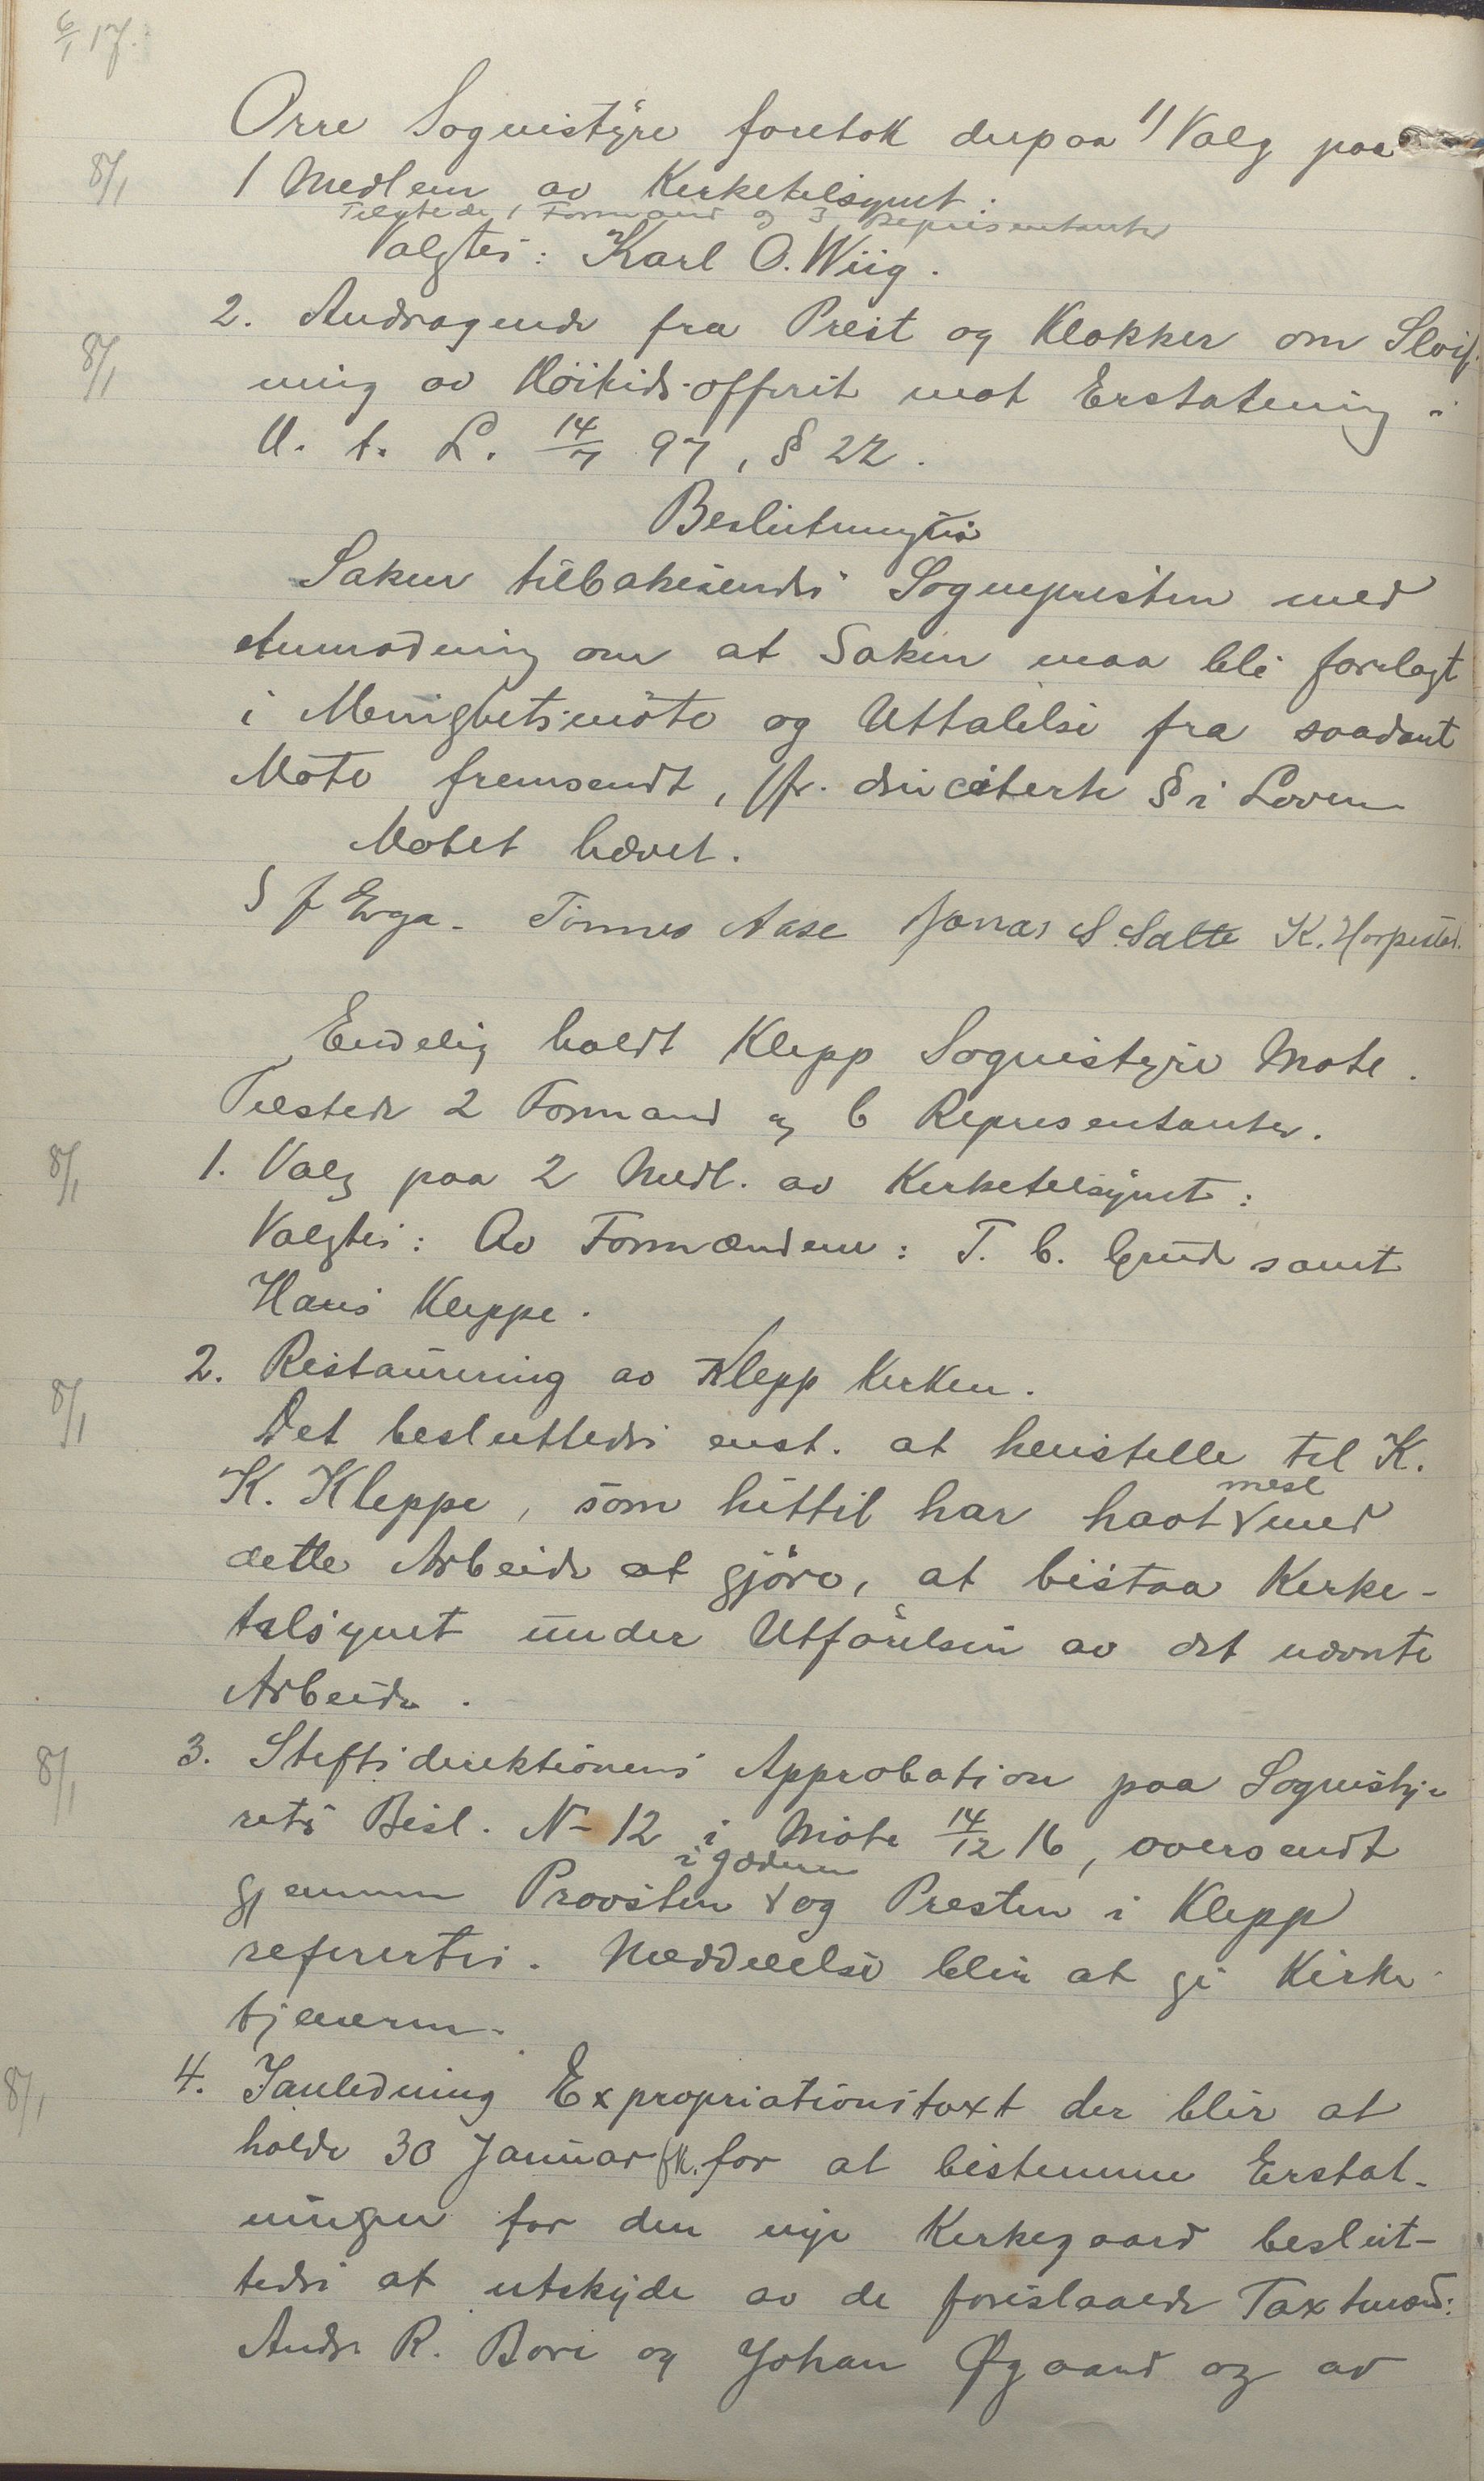 6/1 17.
Orre Sognestyre foretok derpaa 1) Valg paa
8/1
1 Medlem av Kirketilsynet:
Tilstede 1 Formand og 3 Representanter
Valgtes: Karl O. Wiig.
2. Andragende fra Prest og Klokker om Sløif-
8/1
ning av Høitids-offeret mot Erstatning i
H. t. L. 14/7 97, § 22.
Beslutning
Saken tilbakesendes Sognepresten med
Anmodning om at Saken maa bli forelagt
i Menighetsmöte og Uttalelse fra saadant
Möte fremsendt, jfr. den citerte § i Loven
Mötet hævet.
S J Erga. Tönnes Aase Jonas S. Salte K. Horpestad.
Endelig holdt Klepp Sognestyre Möte.
Tilstede 2 Formænd og 6 Representanter.
8/1
1. Valg paa 2 Medl. av Kirketilsynet:
Valgtes: Av Formændene: T. C. Grude samt
Hans Kleppe.
2. Restaurering av Klepp Kirken.
8/1
Det besluttedes enst. at henstille til K.
K. Kleppe, som hittil har havt mest med
dette Arbeide at gjöre, at bistaa Kirke-
tilsynet under Utförelsen av det nævnte
Arbeide.
3. Stiftsdirektionens Approbation paa Sognesty-
8/1
rets Besl. No 12 i Möte 14/12 16, oversendt
gjennem Provsten i Jæderen og Presten i Klepp
refertes. Meddelelse blir at gi Kirke-
tjeneren.
4. I anledning Expropriationstaxt der blir at
8/1
holde 30 Januar fk. for at bestemme Erstat-
ningen for den nye Kirkegaard beslut-
tedes at utskyde av de foreslaaede Taxtmænd:
Andr. R. Bore og Johan Øgaard og av